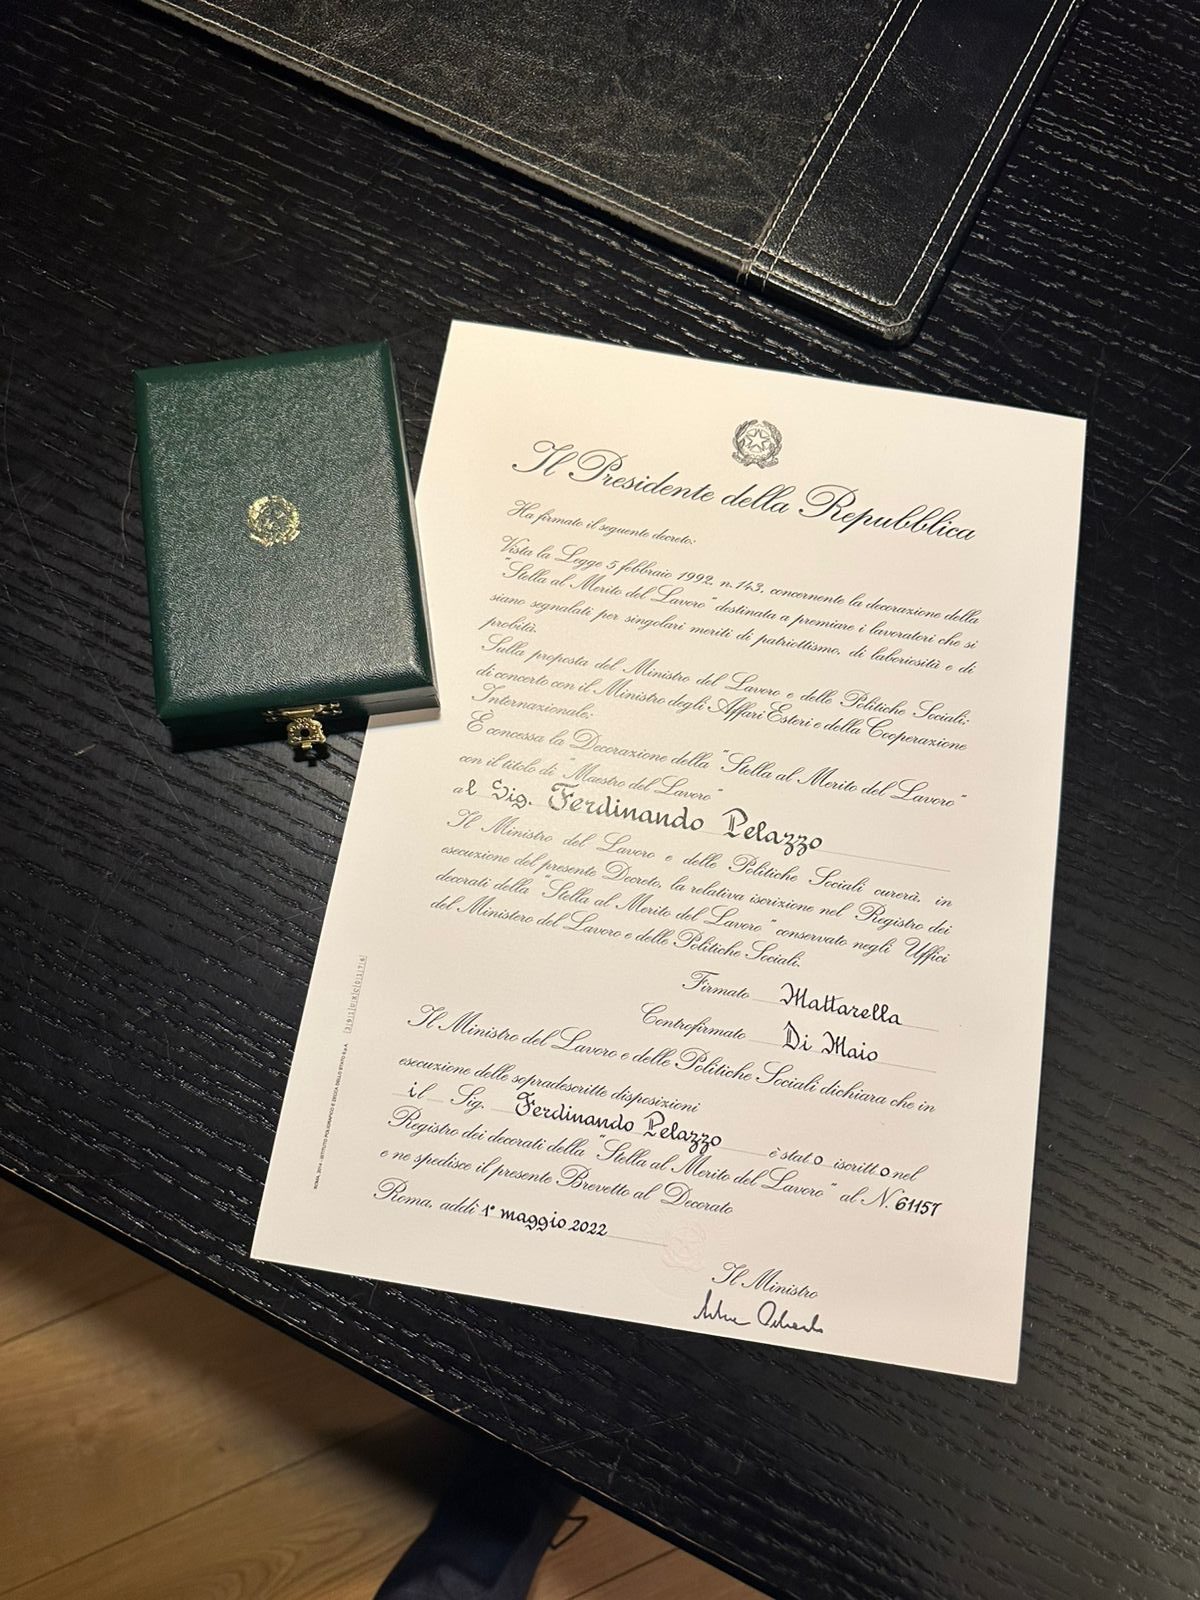 Il Presidente della Repubblica
Ha firmato il seguente decreto:
Vista la Legge 5 febbraio 1992, n. 143, concernente la decorazione della
"Stella al Merito del Lavoro" destinata a premiare i lavoratori che si
siano segnalati per singolari meriti di patriottismo, di laboriosità e di
probità.
Sulla proposta del Ministro del Lavoro e delle Politiche Sociali;
di concerto con il Ministro degli Affari Esteri e della Cooperazione
Internazionale;
È concessa la Decorazione della "Stella al Merito del Lavoro"
con il titolo di "Maestro del Lavoro"
al Sig. Ferdinando Pelazzo
Il Ministro del Lavoro e delle Politiche Sociali curerà, in
esecuzione del presente Decreto, la relativa iscrizione nel Registro dei
decorati della "Stella al Merito del Lavoro" conservato negli Uffici
del Ministero del Lavoro e delle Politiche Sociali.
Firmato Mattarella
Controfirmato Di Maio
Il Ministro del Lavoro e delle Politiche Sociali dichiara che in
esecuzione delle sopradescritte disposizioni
il Sig. Ferdinando Pelazzo è stato iscritto nel
Registro dei decorati della "Stella al Merito del Lavoro" al N. 61157
e ne spedisce il presente Brevetto al Decorato
Roma, addì 1° maggio 2022
Il Ministro
ISTITUTO POLIGRAFICO E ZECCA DELLO STATO S.p.A.